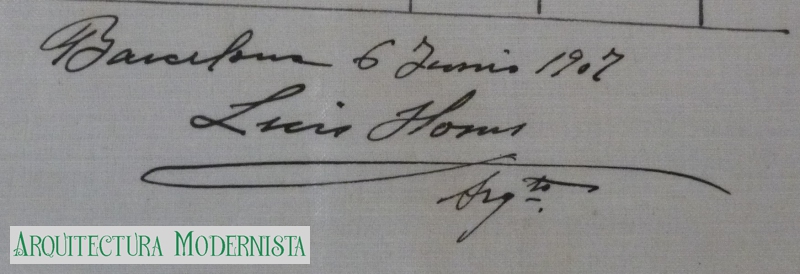 Barcelona 6 Junio 1907
Luis Homs
Arqto.
Arquitectura Modernista